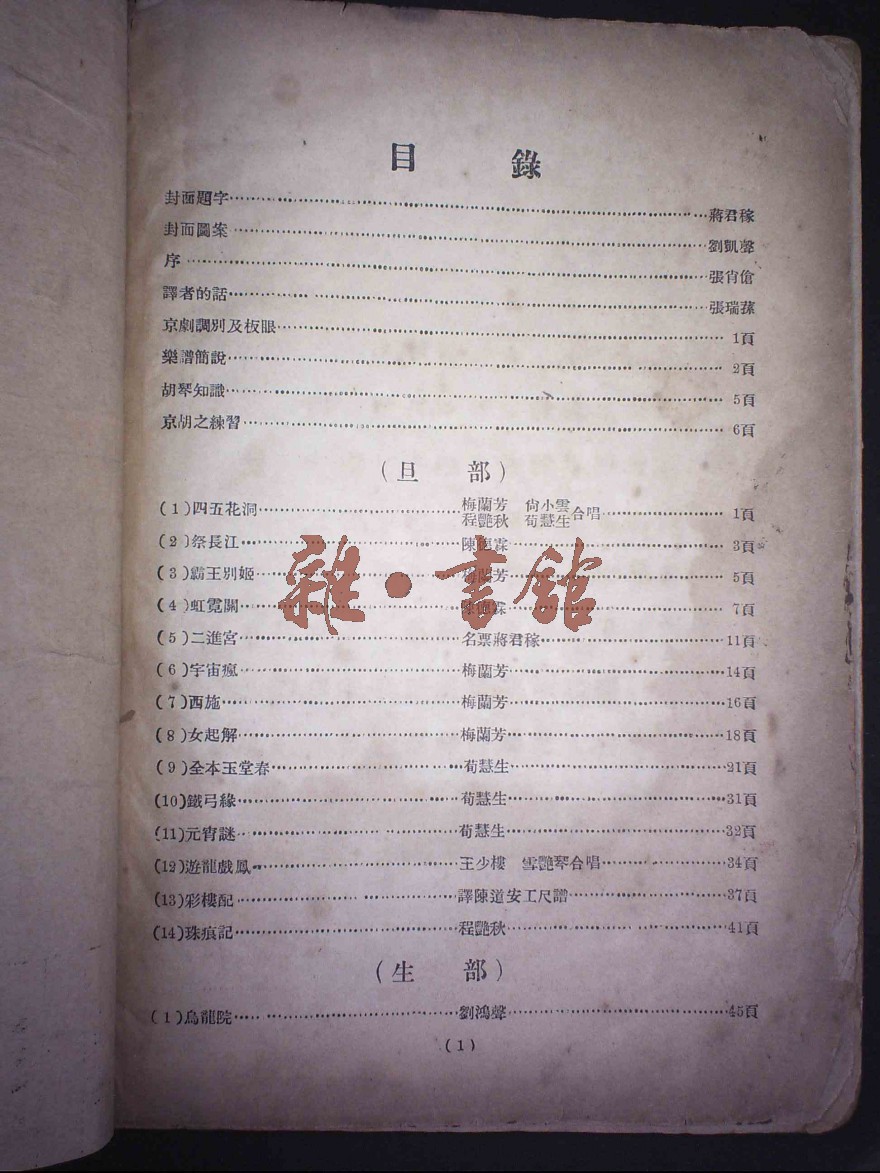 目 錄
封面題字……蔣君稼
封面圖案……劉凱聲
序……張肖傖
譯者的話……張瑞蓀
京劇調別及板眼……1頁
樂譜簡說……2頁
胡琴知識……5頁
京胡之練習……6頁
(旦 部)
(1)四五花洞……梅蘭芳 尙小雲 程艷秋 荀慧生合唱……1頁
(2)祭長江……陳德霖……3頁
(3)霸王別姬……梅蘭芳……5頁
(4)虹霓關……陳德霖……7頁
(5)二進宮……名票蔣君稼……11頁
(6)宇宙瘋……梅蘭芳……14頁
(7)西施……梅蘭芳……16頁
(8)女起解……梅蘭芳……18頁
(9)全本玉堂春……荀慧生……21頁
(10)鐵弓緣……荀慧生……31頁
(11)元宵謎……荀慧生……32頁
(12)遊龍戲鳳……王少樓 雪艷琴合唱……34頁
(13)彩樓配……譯陳道安工尺譜……37頁
(14)珠痕記……程艷秋……41頁
(生 部)
(1)烏龍院……劉鴻聲……45頁
(1)
雜·書館